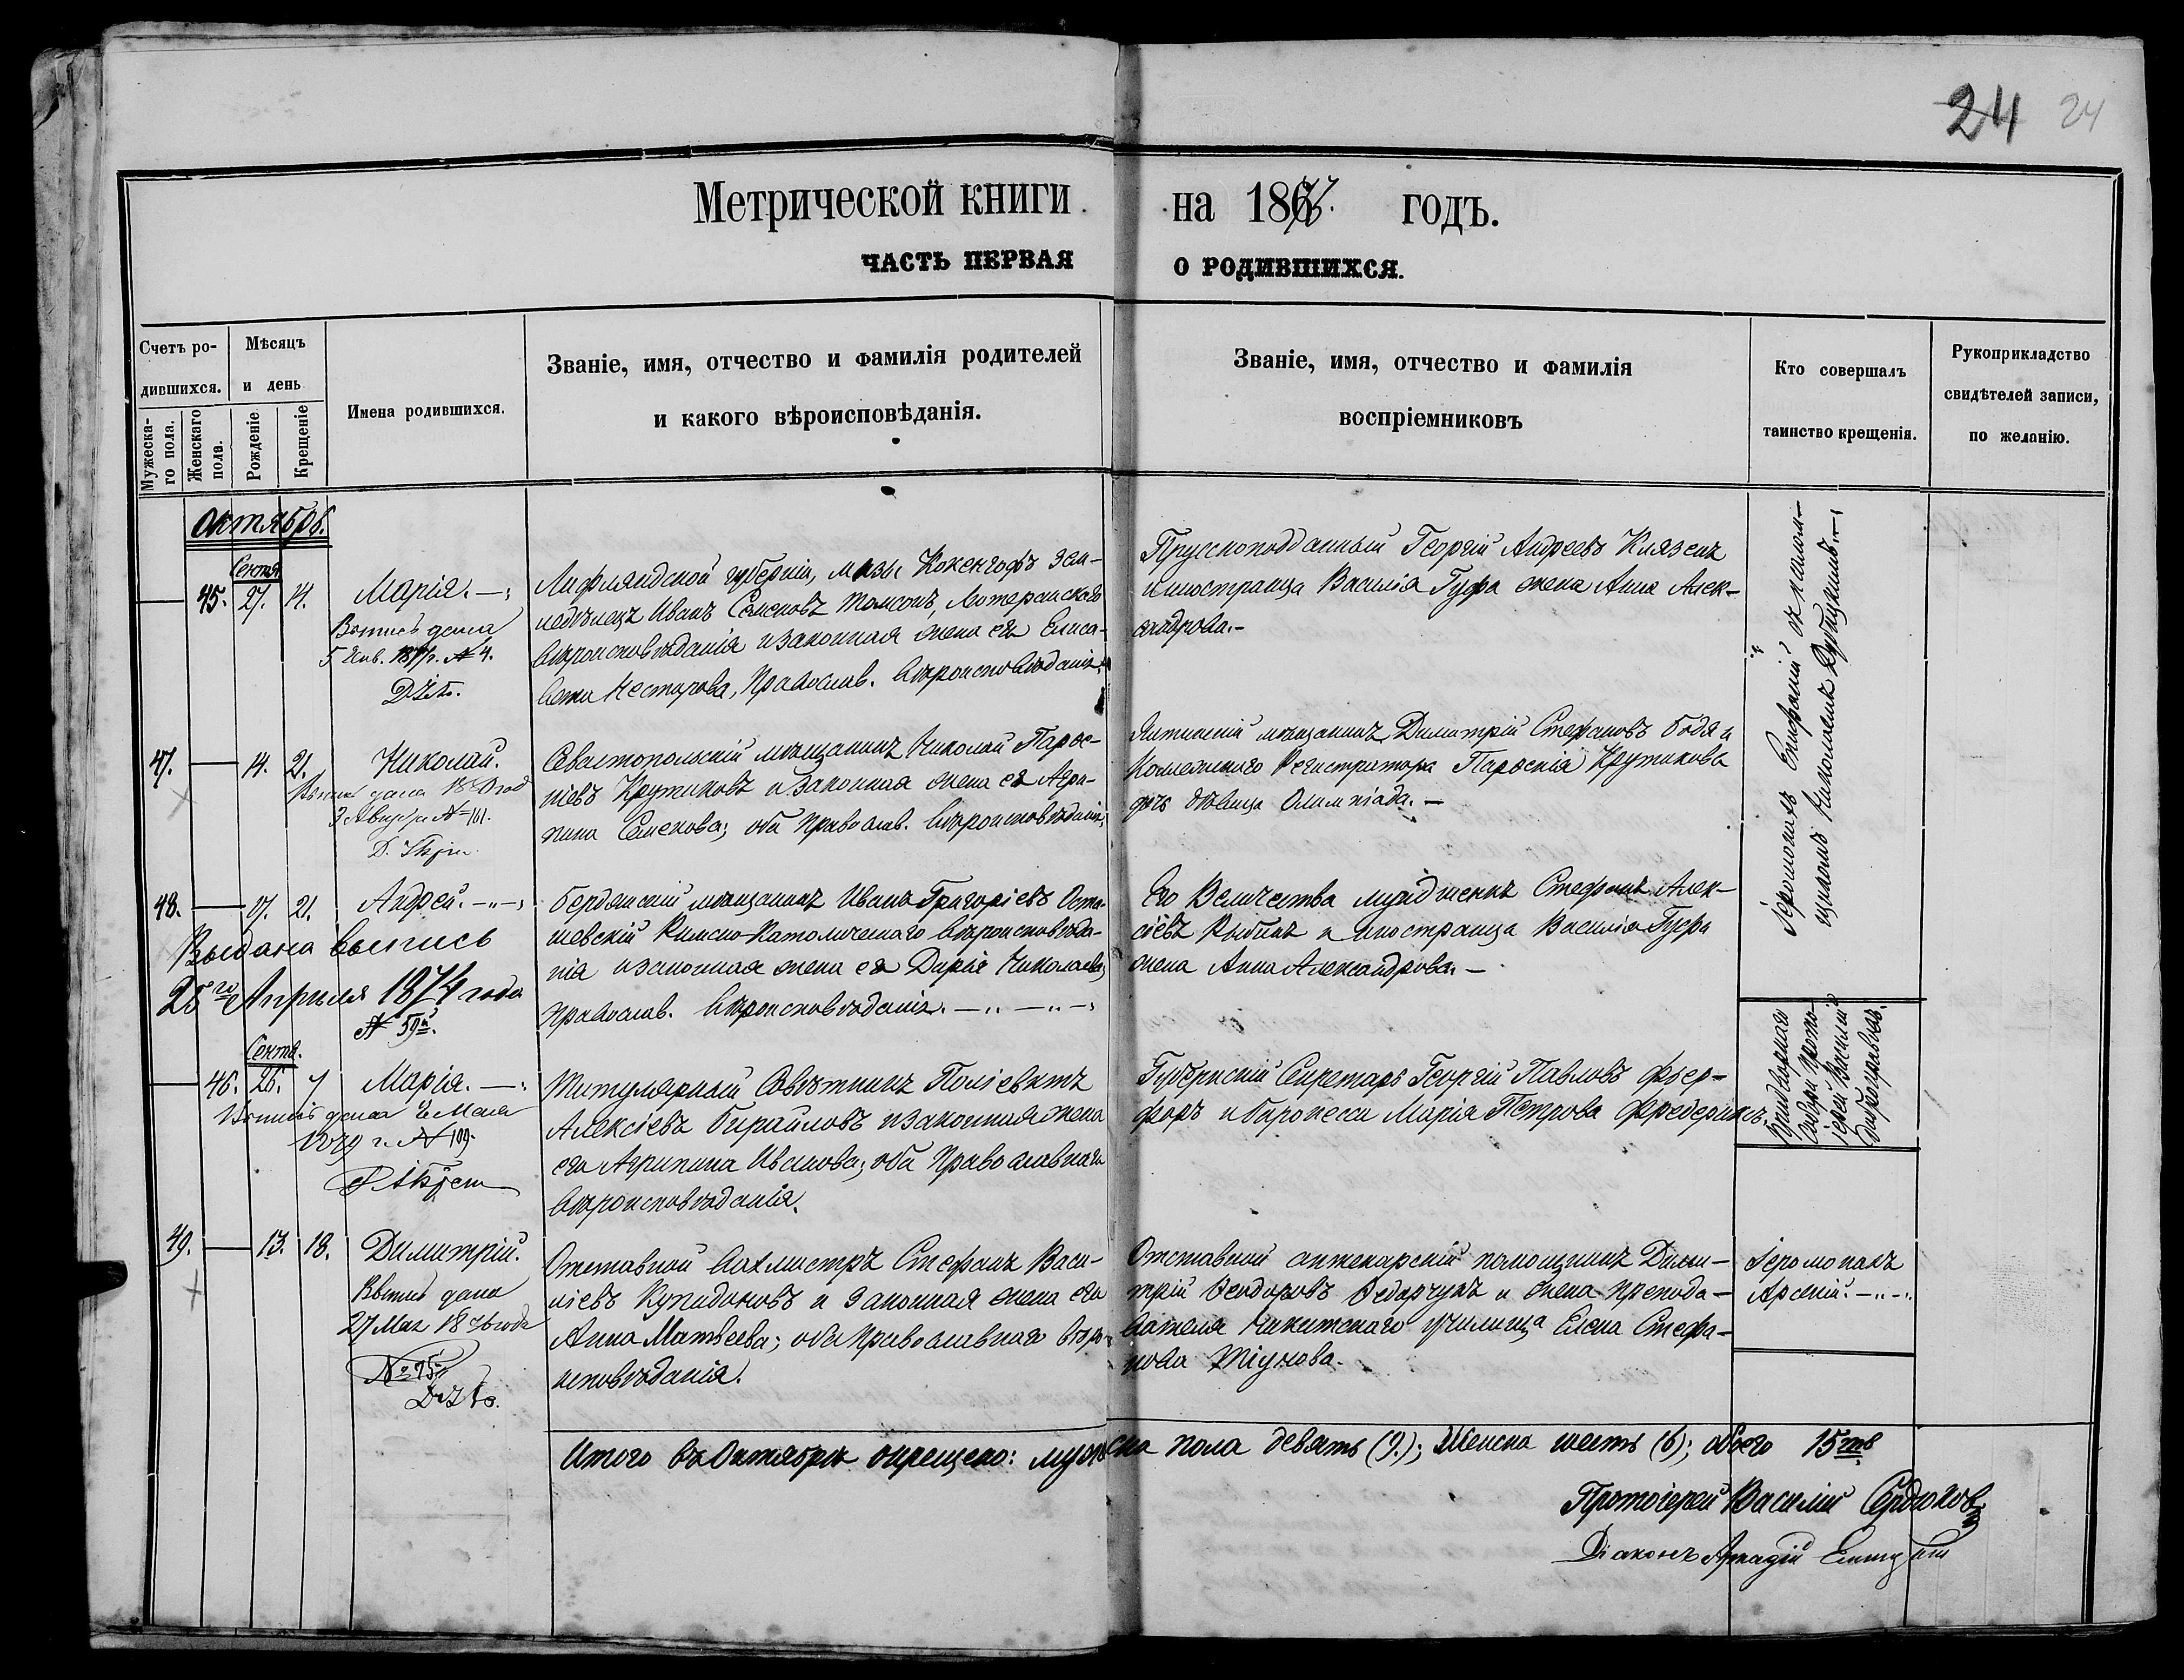 24 24
Метрической книги на 1867. годъ.
ЧАСТЬ ПЕРВАЯ О РОДИВШИХСЯ.
Счетъ ро-
дившихся.
Мужеска-
го пола.
Женскаго
пола.
Мѣсяцъ
и день
Рожденіе
Крещеніе
Имена родившихся.
Званіе, имя, отчество и фамилія родителей
и какого вѣроисповѣданія.
Званіе, имя, отчество и фамилія
воспріемниковъ
Кто совершалъ
таинство крещенія.
Рукоприкладство
свидѣтелей записи,
по желанію.
Октябрь.
Сентя.
45. 27. 14. Марія.
5 Янв. № 4.
Лифляндской губерніи, мызы Кокенгофъ зем-
ледѣлецъ Иванъ Семеновъ Томсонъ, Лютеранскаго
вѣроисповѣданія и законная жена его Елиса-
вета Нестерова, Православ. вѣроисповѣданія.
Прусскоподданный Георгій Андреевъ Князенъ
и иностранца Василія Гуфа жена Анна Алек-
сандрова.-
Іеромонахъ Епифаній съ псалом-
щикомъ Николаемъ
47. 14. 21. Николай.
дана
№ 161.
Севастопольскій мѣщанинъ Николай Парѳе-
ніевъ Крутиковъ и законная жена его Агри-
пина Семенова; оба Православ. вѣроисповѣданія;
Ялтинскій мѣщанинъ Димитрій Стефановъ Бодя и
Коллежскаго Регистратора Парѳенія Крутикова
дочь дѣвица Олимпіада. -
48. 17. 21. Андрей.
Выдана выпись
25го Апрѣля 1874 года
№ 59й.
Бердянскій мѣщанинъ Иванъ Григоріевъ
шевскій Римско-Католическаго вѣроисповѣда-
нія и законная жена его Дарія Николаева,
Православ. вѣроисповѣданія.
Его Величества Стефанъ Алек-
сіевъ Рыбинъ и иностранца Василія Гуфа
жена Анна Александрова. -
Сентя.
46. 26. 7 Марія.
Выпись дана Мая
1879 г. № 109.
Титулярный Совѣтникъ Поліевктъ
Алексіевъ Бирайловъ и законная жена
его Агрипина Иванова; оба Православнаго
вѣроисповѣданія.
Губернскій Секретарь Георгій Павловъ
и баронесса Марія Петрова Фредериксъ.
Придворнаго
Собора прото-
іерей Василій
49. 13. 18. Димитрій.
Выпись дана
27 Мая года
№ 75
Отставной Вахмистръ Стефанъ Васи-
ліевъ Купидоновъ и законная жена его
Анна Матвѣева; оба Православнаго вѣро-
исповѣданія.
Отставной аптекарскій помощникъ Дими-
трій Ѳеодоровъ Ѳедорчукъ и жена препода-
вателя Никитскаго училища Елена Стефа-
нова Тіунова.
Іеромонахъ
Арсеній.
Итого въ Октябрѣ окрещено: мужеска пола девять (9.); Женска шесть (6); обоего 15ть
Протоіерей Василій Сердюковъ
Діаконъ Аркадій